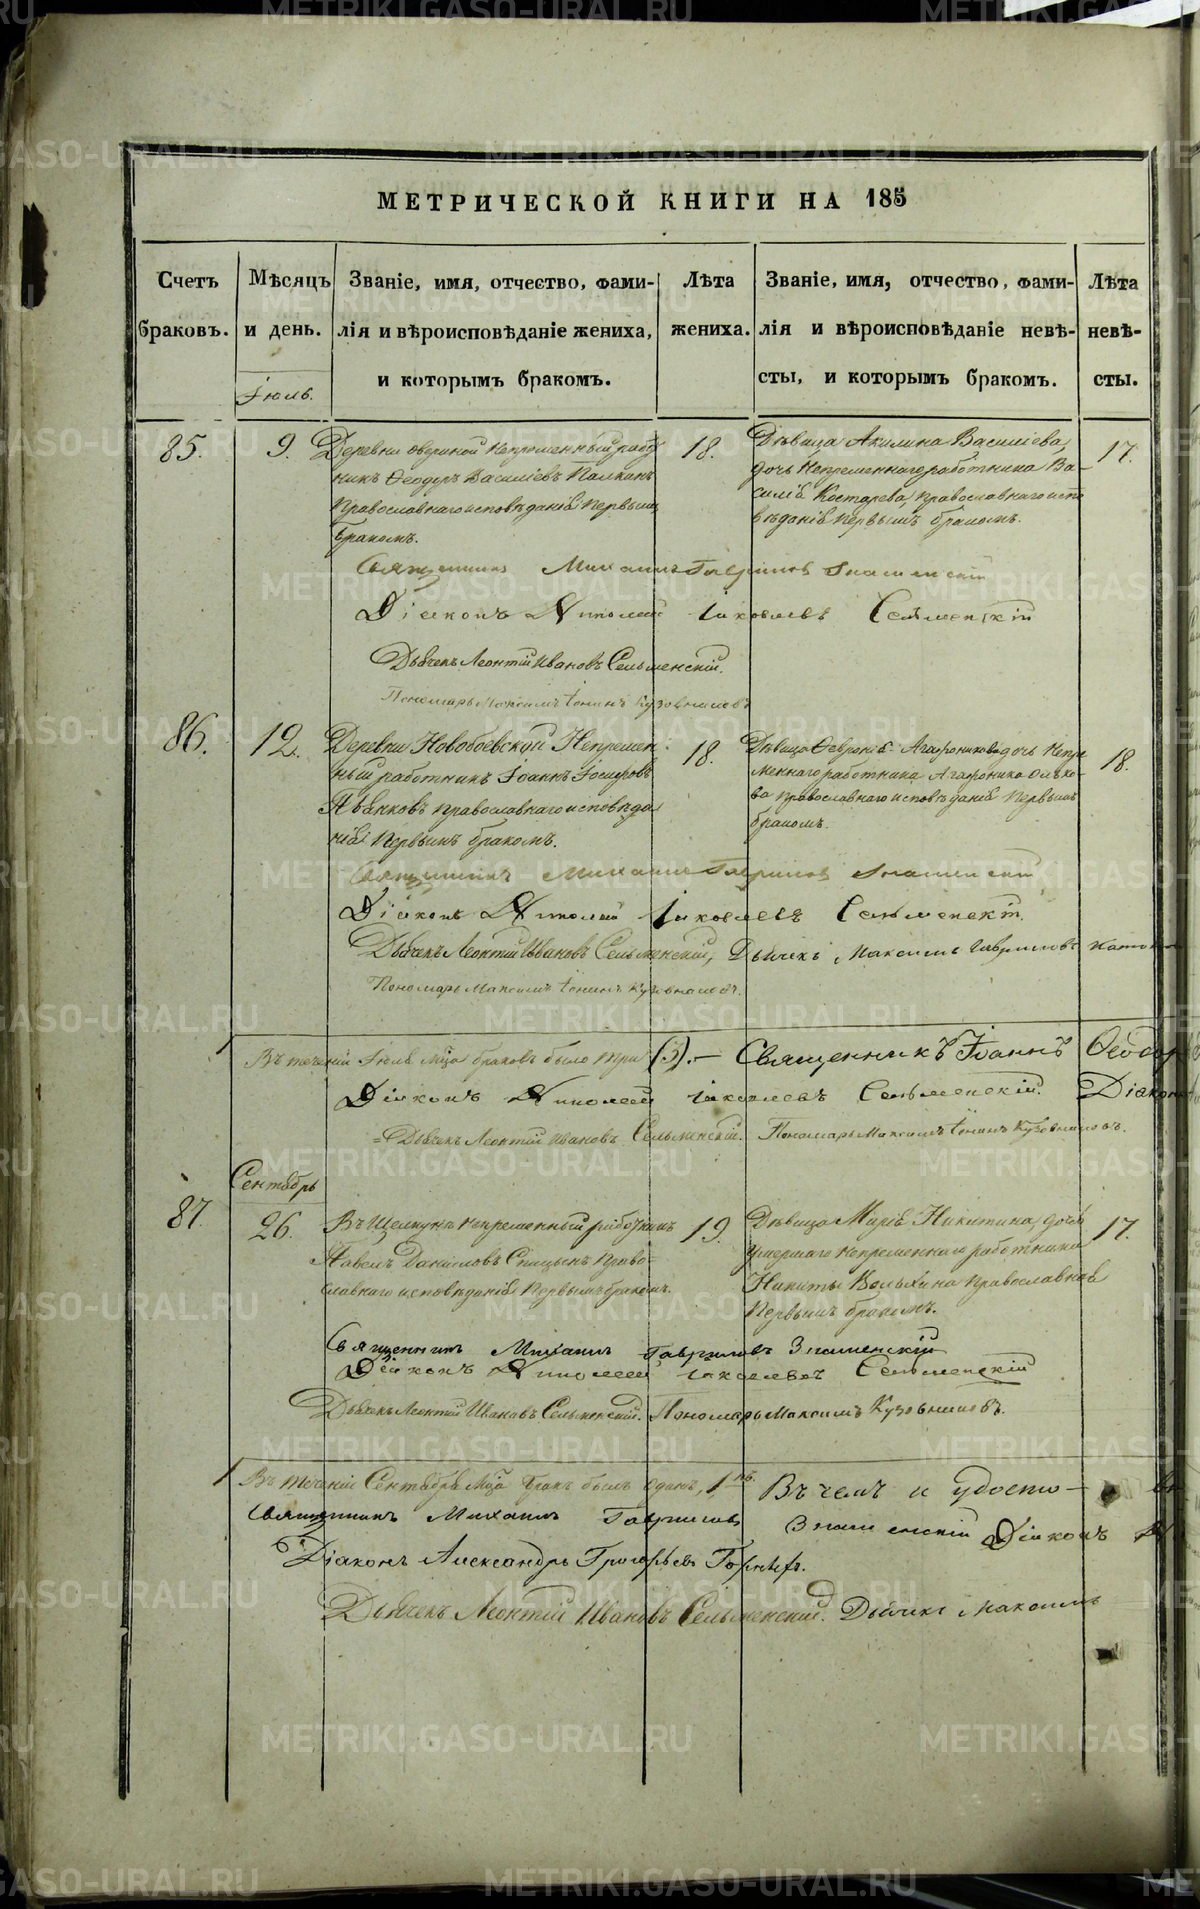 МЕТРИЧЕСКОЙ КНИГИ НА 185
Счетъ браковъ.
Мѣсяцъ и день.
Званіе, имя, отчество, фами-
лія и вѣроисповѣданіе жениха,
и которымъ бракомъ.
Лѣта
жениха.
Званіе, имя, отчество, фами-
лія и вѣроисповѣданіе невѣ-
сты, и которымъ бракомъ.
Лѣта
невѣ-
сты.
Іюль.
85.
9.
Деревни Овериной Непременный рабо
никъ Ѳеодоръ Василіевъ Палкинъ
Православнаго исповѣданія первымъ
бракомъ.
18.
Дѣвица Акилина Василіева,
дочь Непременнаго работника Ва-
силія Костарева, православнаго испо
вѣданія первымъ бракомъ.
17.
Священникъ Михаилъ Гавриловъ Знаменскій
Діаконъ Николай Іаковлевъ Сельменскій
Дьячекъ Леонтій Ивановъ Сельменскій.
Пономарь Максимъ Кузовниковъ
86.
12.
Деревни Новобоевской Непремен
ный работникъ Іоаннъ
православнаго исповѣда
нія Первымъ бракомъ.
18.
Дѣвица Ѳевронія Агафоникова дочь Непре
меннаго работника Агафоника
ва православнаго исповѣданія Первымъ
бракомъ.
18.
Священникъ Михаилъ Гавриловъ Знаменскій
Діаконъ Николай Іаковлевъ Сельменскій.
Дьячекъ Леонтій Ивановъ Сельменскій, Дьячекъ Максимъ Гавриловъ
Пономарь Максимъ Кузовниковъ.
Въ теченіи Іюля Мца браковъ было три (3). — Священникъ Іоаннъ
Діаконъ Николай Іаковлевъ Сельменскій. Діаконъ
Дьячекъ Леонтій Ивановъ Сельменскій. Пономарь Максимъ Кузовниковъ.
Сентябрь
87.
26.
Въ Щелкунѣ Непременный работникъ
Павелъ Даниловъ Спицынъ Право-
славнаго исповѣданія Первымъ бракомъ.
19.
Дѣвица Марія Никитина, дочь
умершаго Непременнаго работника
Никиты православнаго
Первымъ бракомъ.
17.
Священникъ Михаилъ Гавриловъ Знаменскій
Діаконъ Николай Іаковлевъ Сельменскій
Дьячекъ Леонтій Ивановъ Сельменскій. Пономарь Максимъ Кузовниковъ.
Въ теченіи Сентября Мца бракъ былъ одинъ, 1нъ. Въ чемъ и удосто-
Священникъ Михаилъ Гавриловъ Знаменскій Діаконъ
Діаконъ Александръ Григорьевъ
Дьячекъ Леонтій Ивановъ Сельменскій. Дьячекъ Максимъ
METRIKI.GASO-URAL.RU